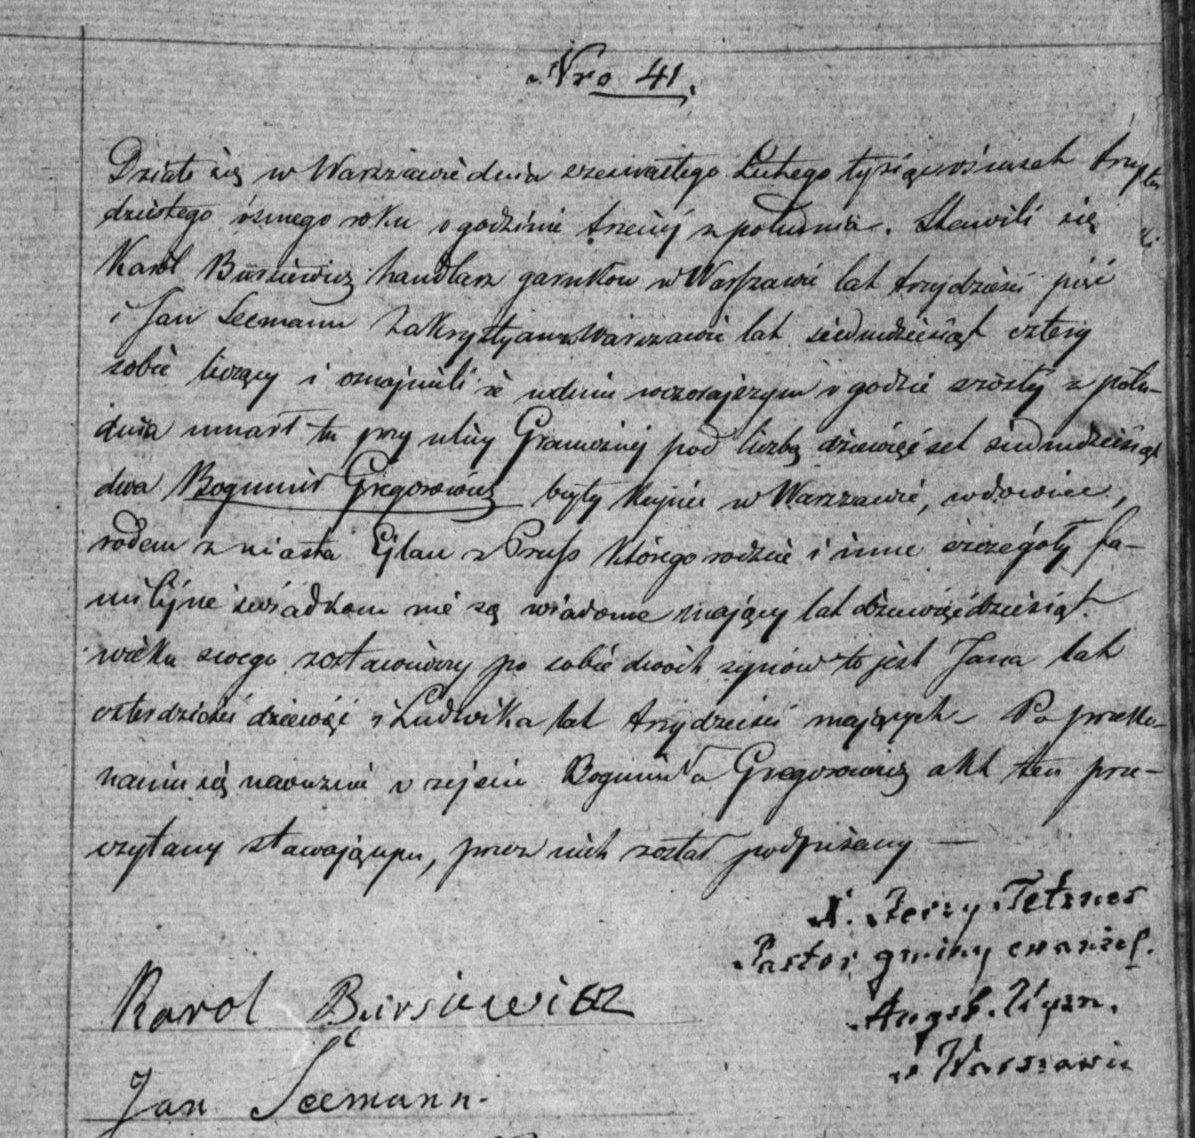 Nro 41.
Działo się w Warszawie dnia czternastego Lutego tysiąc ośmset trzy
dziestego ósmego roku o godzinie trzeciej z południa. Stawili się
Karol Bursiewicz handlarz garnków w Warszawie lat trzydzieści pięć
i Jan Seemann Zakrystyan w Warszawie lat siedmdziesiąt cztery
sobie liczący i oznajmili że w dniu wczorajszym o godzie szóstej z połu-
dnia umarł tu przy ulicy Granicznej pod liczbą dziewięćset siedmdziesiąt
dwa Bogumił Gregorowicz były Kupiec w Warszawie, wdowiec,
rodem z miasta Ejlau z Pruss którego rodzice i inne szczegóły fa-
milijne świadkom nie są wiadome mający lat dziewięćdziesiąt
wieku swego zostawiwszy po sobie dwóch synów to jest Jana lat
czterdzieści dziewięć i Ludwika lat trzydzieści mających – Po przeko-
naniu się naocznie o zejściu Bogumiła Gregorowicz akt ten prze-
czytany stawającym, przez nich został podpisany —
X. Jerzy Tetzner
Pastor gminy ewaniel.
Augsb. Wyzn.
w Warszawie
Karol Bursiewicz
Jan Seemann.